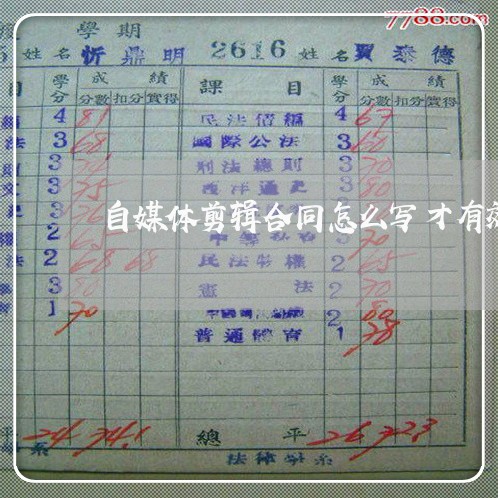 7788.com
學期
5 姓名 忻鼎明 2616 姓名 賈泰德
目 學分 成績 課目 學分 成績
分數 扣分 實得 分數 扣分 實得
4 81 民法債編 4 67
法 3 68 國際公法 3 60
3 刑法總則 3 70
3 75 西洋通史 3 80
自媒体剪辑合同怎么写才有
2 65 70
法 2 68 68 民法物權 2 65
3 80 憲法 2 70
1 70 2 80
普通體育 1 78
平 24 74.1 總平 26 72.3
系 法律學系